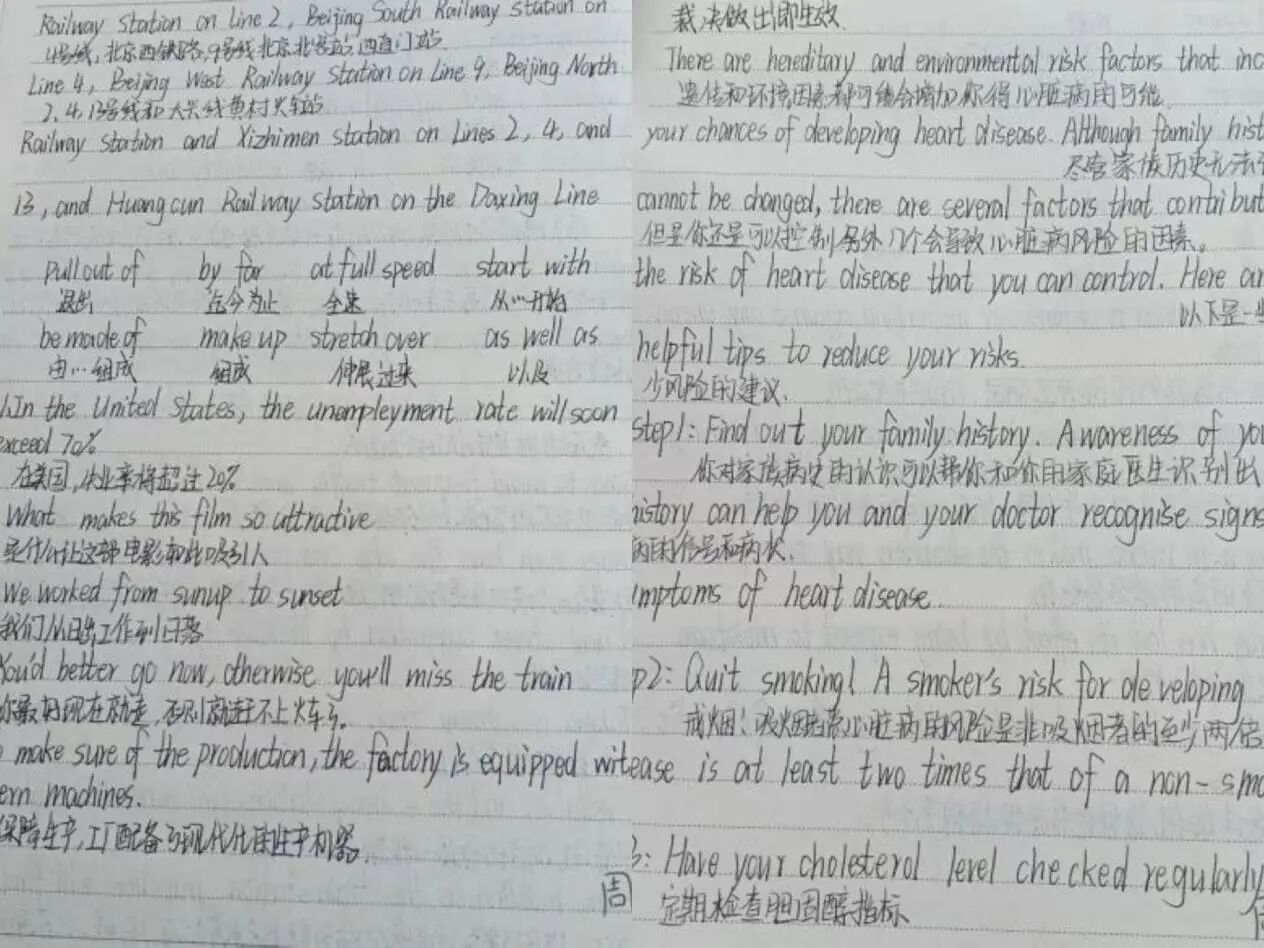 Railway Station on Line 2, Beijing South Railway Station on
4号线, 北京西铁路, 9号线北京北客站西直门站
Line 4, Beijing West Railway Station on Line 9, Beijing North
2, 4, 13号线和大兴线黄村火车站
Railway Station and Xizhimen station on Lines 2, 4, and
13, and Huangcun Railway Station on the Daxing Line
pull out of by far at full speed start with
退出 迄今为止 全速 从…开始
be made of make up stretch over as well as
由…组成 组成 伸展过来 以及
1.In the United States, the unempleyment rate will soon
exceed 70%
在美国, 失业率将超过20%
What makes this film so attractive
是什么让这部电影如此吸引人
We worked from sunup to sunset
我们从日出工作到日落
You'd better go now, otherwise you'll miss the train
你最好现在就走, 否则就赶不上火车了.
make sure of the production, the factory is equipped wit
ern machines.
保障生产, 工厂配备了现代化
机器
周
裁决做出即生效.
There are hereditary and environmental risk factors that inc
遗传和环境因素都可能会增加你得心脏病的可能.
your chances of developing heart disease. Although family hist
尽管家族历史无法
cannot be changed, there are several factors that contribut
但是你还是可以控制另外几个会导致心脏病风险的因素。
the risk of heart disease that you can control. Here ar
以下是一些
helpful tips to reduce your risks.
少风险的建议.
Step1: Find out your family history. Awareness of you
你对家族病史的认识可以帮你和你的家庭医生识别出
history can help you and your doctor recognise signs
病的信号和病状.
mptoms of heart disease.
p2: Quit smoking! A smoker's risk for developing
戒烟! 吸烟者患心脏病的风险是非吸烟者的至少两倍
ease is at least two times that of a non-smo
3: Have your cholesterol level checked regularly
定期检查胆固醇指标